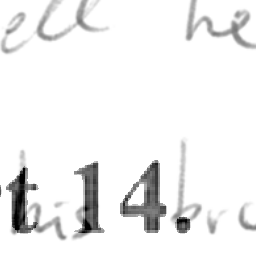 ell he
t 14.
his bro